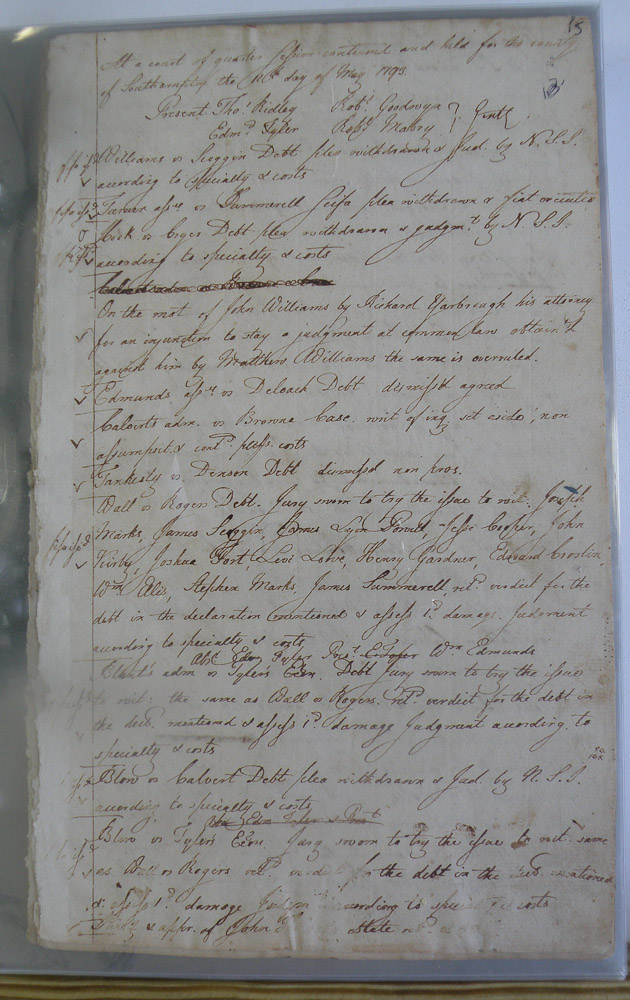 15
At a court of quarter session continued and held for the county
of Southampton the day of May 1793
Present Thos. Ridley Robt. Goodwyn } Gentl
Edmd. Tyler Robt. Mabry
Williams vs Scoggin Debt plea withdrawn & Jud. by N.S.I.
according to specialty & costs
Turner assee vs Summerell Scifa plea withdrawn & fiat execution
vs Debt plea withdrawn & judgmt. by N.S.I.
according to specialty & costs
On the mot of John Williams by Richard Yarbrough his attorney
for an injunction to stay a judgment at common law obtain'd
against him by Matthew Williams the same is overruled.
Edmunds assee vs Deloach Debt dismissd agreed
Calverts adm. vs Browne Case. writ of inq. set aside, non
assumpsit & contd. pltffs. costs
Tankesly vs. Denson Debt dismissed non pros.
Wall vs Rogers Debt. Jury sworn to try the issue to wit: Joseph
Marks, James Scoggin, James Lyon Powell, Jesse Cooper, John
Kirby, Joshua Fort, Levi Lowe, Henry Gardner, Edward Croslin,
Wm Ellis, Stephen Marks, James Summerell, retd. verdict for the
debt in the declaration mentioned & assess 1d. damage. Judgment
according to specialty & costs
Abst. Edm Tyler Prest. Wm Edmunds
adm vs Tyler's Exrs. Debt Jury sworn to try the issue
to wit: the same as Wall vs Rogers. retd. verdict for the debt in
the decl. mentiond & assess 1d. damage Judgment according to
specialty & costs
Blow vs Calvert Debt plea withdrawn & Jud. by N.S.I.
according to specialty & costs
Blow vs Tyler's Exrs. Jury sworn to try the issue to wit same
as Wall vs Rogers retd. for the debt in the mentioned
& assess 1d. damage according to & costs
& appr. of John State